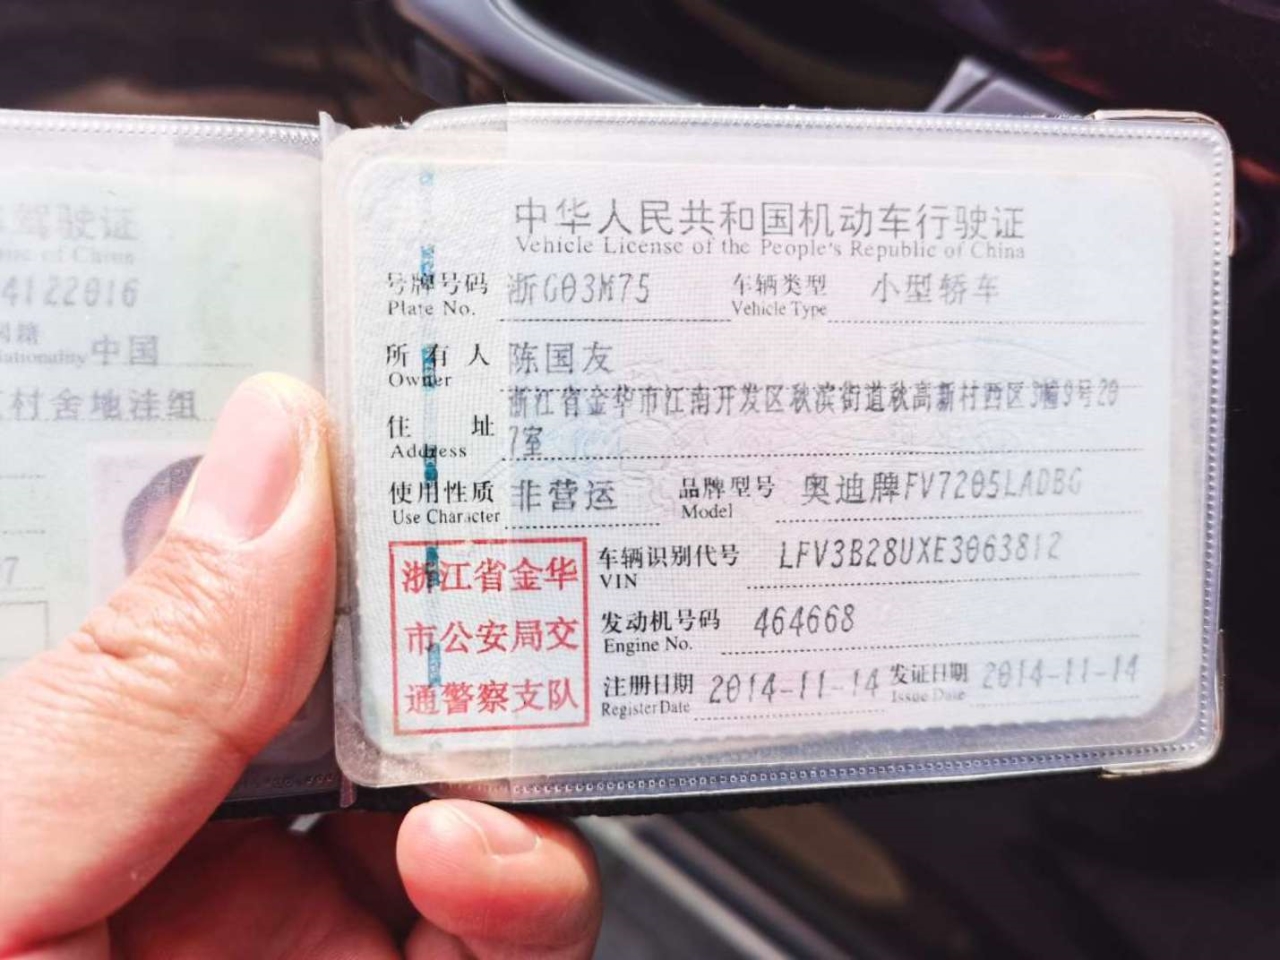 驾驶证
4122016
中国
村舍地洼组
中华人民共和国机动车行驶证
Vehicle License of the People's Republic of China
号牌号码 浙G03M75 车辆类型 小型轿车
Plate No. Vehicle Type
所有人 陈国友
Owner
浙江省金华市江南开发区秋滨街道秋高新村西区3幢9号20
住址 7室
Address
使用性质 非营运 品牌型号 奥迪牌FV7205LADBG
Use Character Model
浙江省金华
市公安局交
通警察支队
车辆识别代号 LFV3B28UXE3063812
VIN
发动机号码 464668
Engine No.
注册日期 2014-11-14 发证日期 2014-11-14
Register Date Issue Date